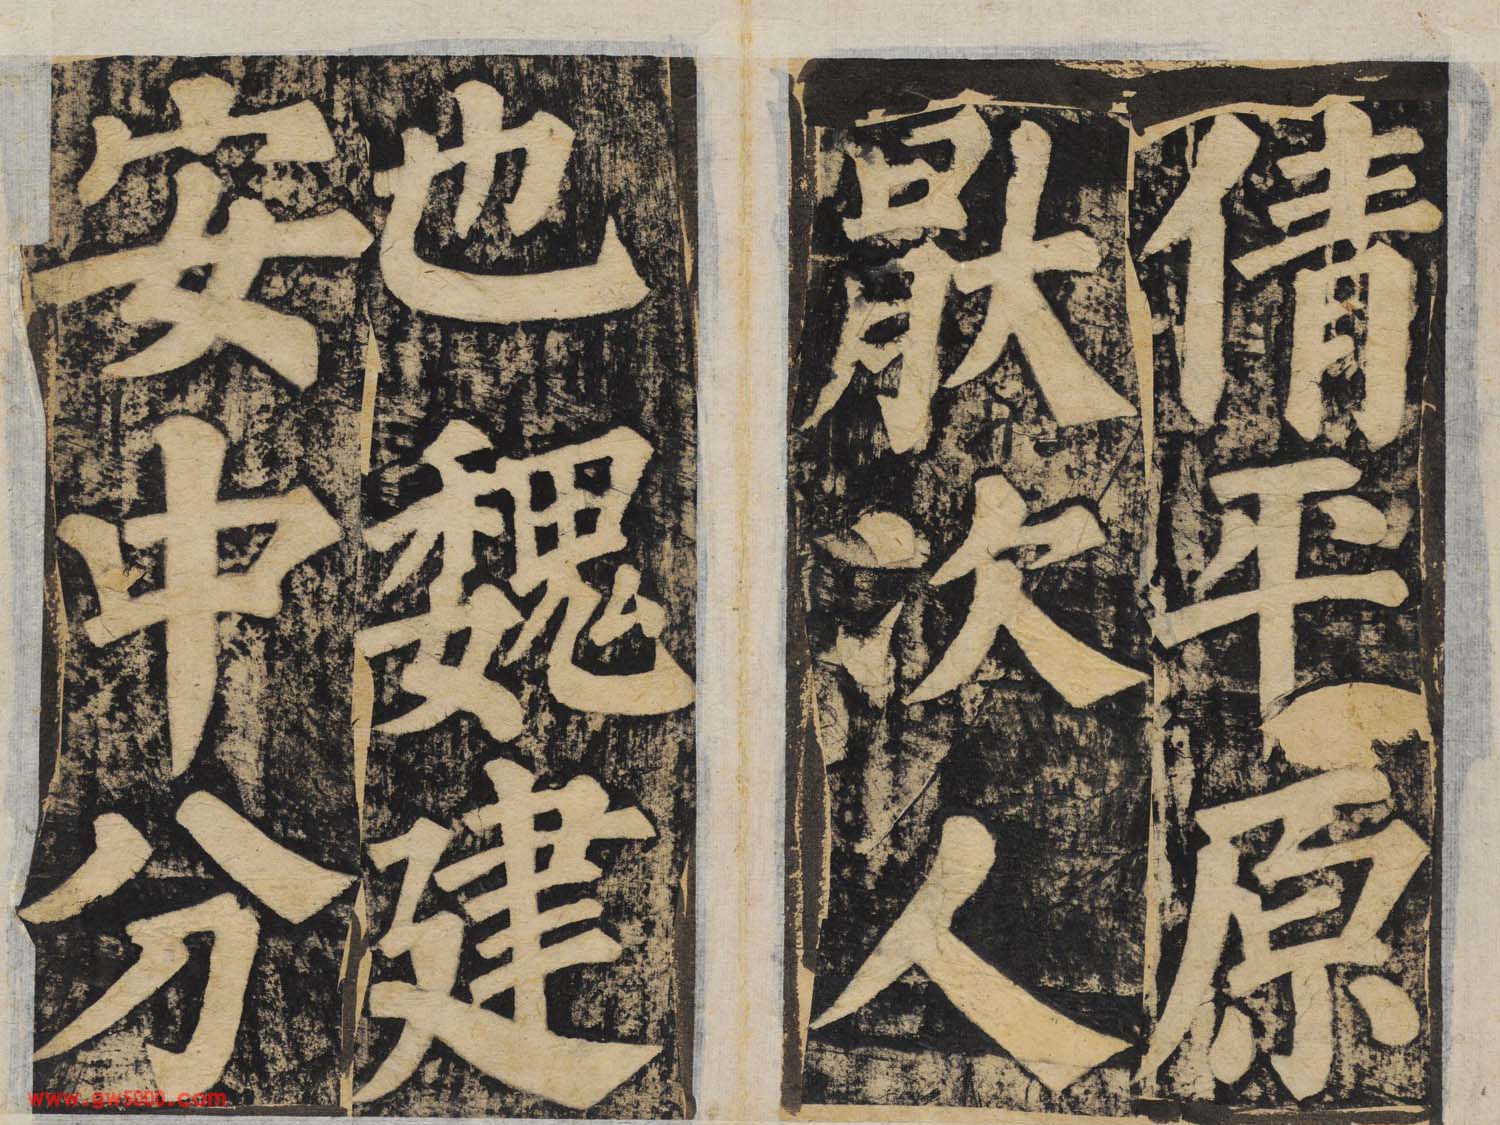 倩平原
猒次人
也魏建
安中分
www.gw5000.com